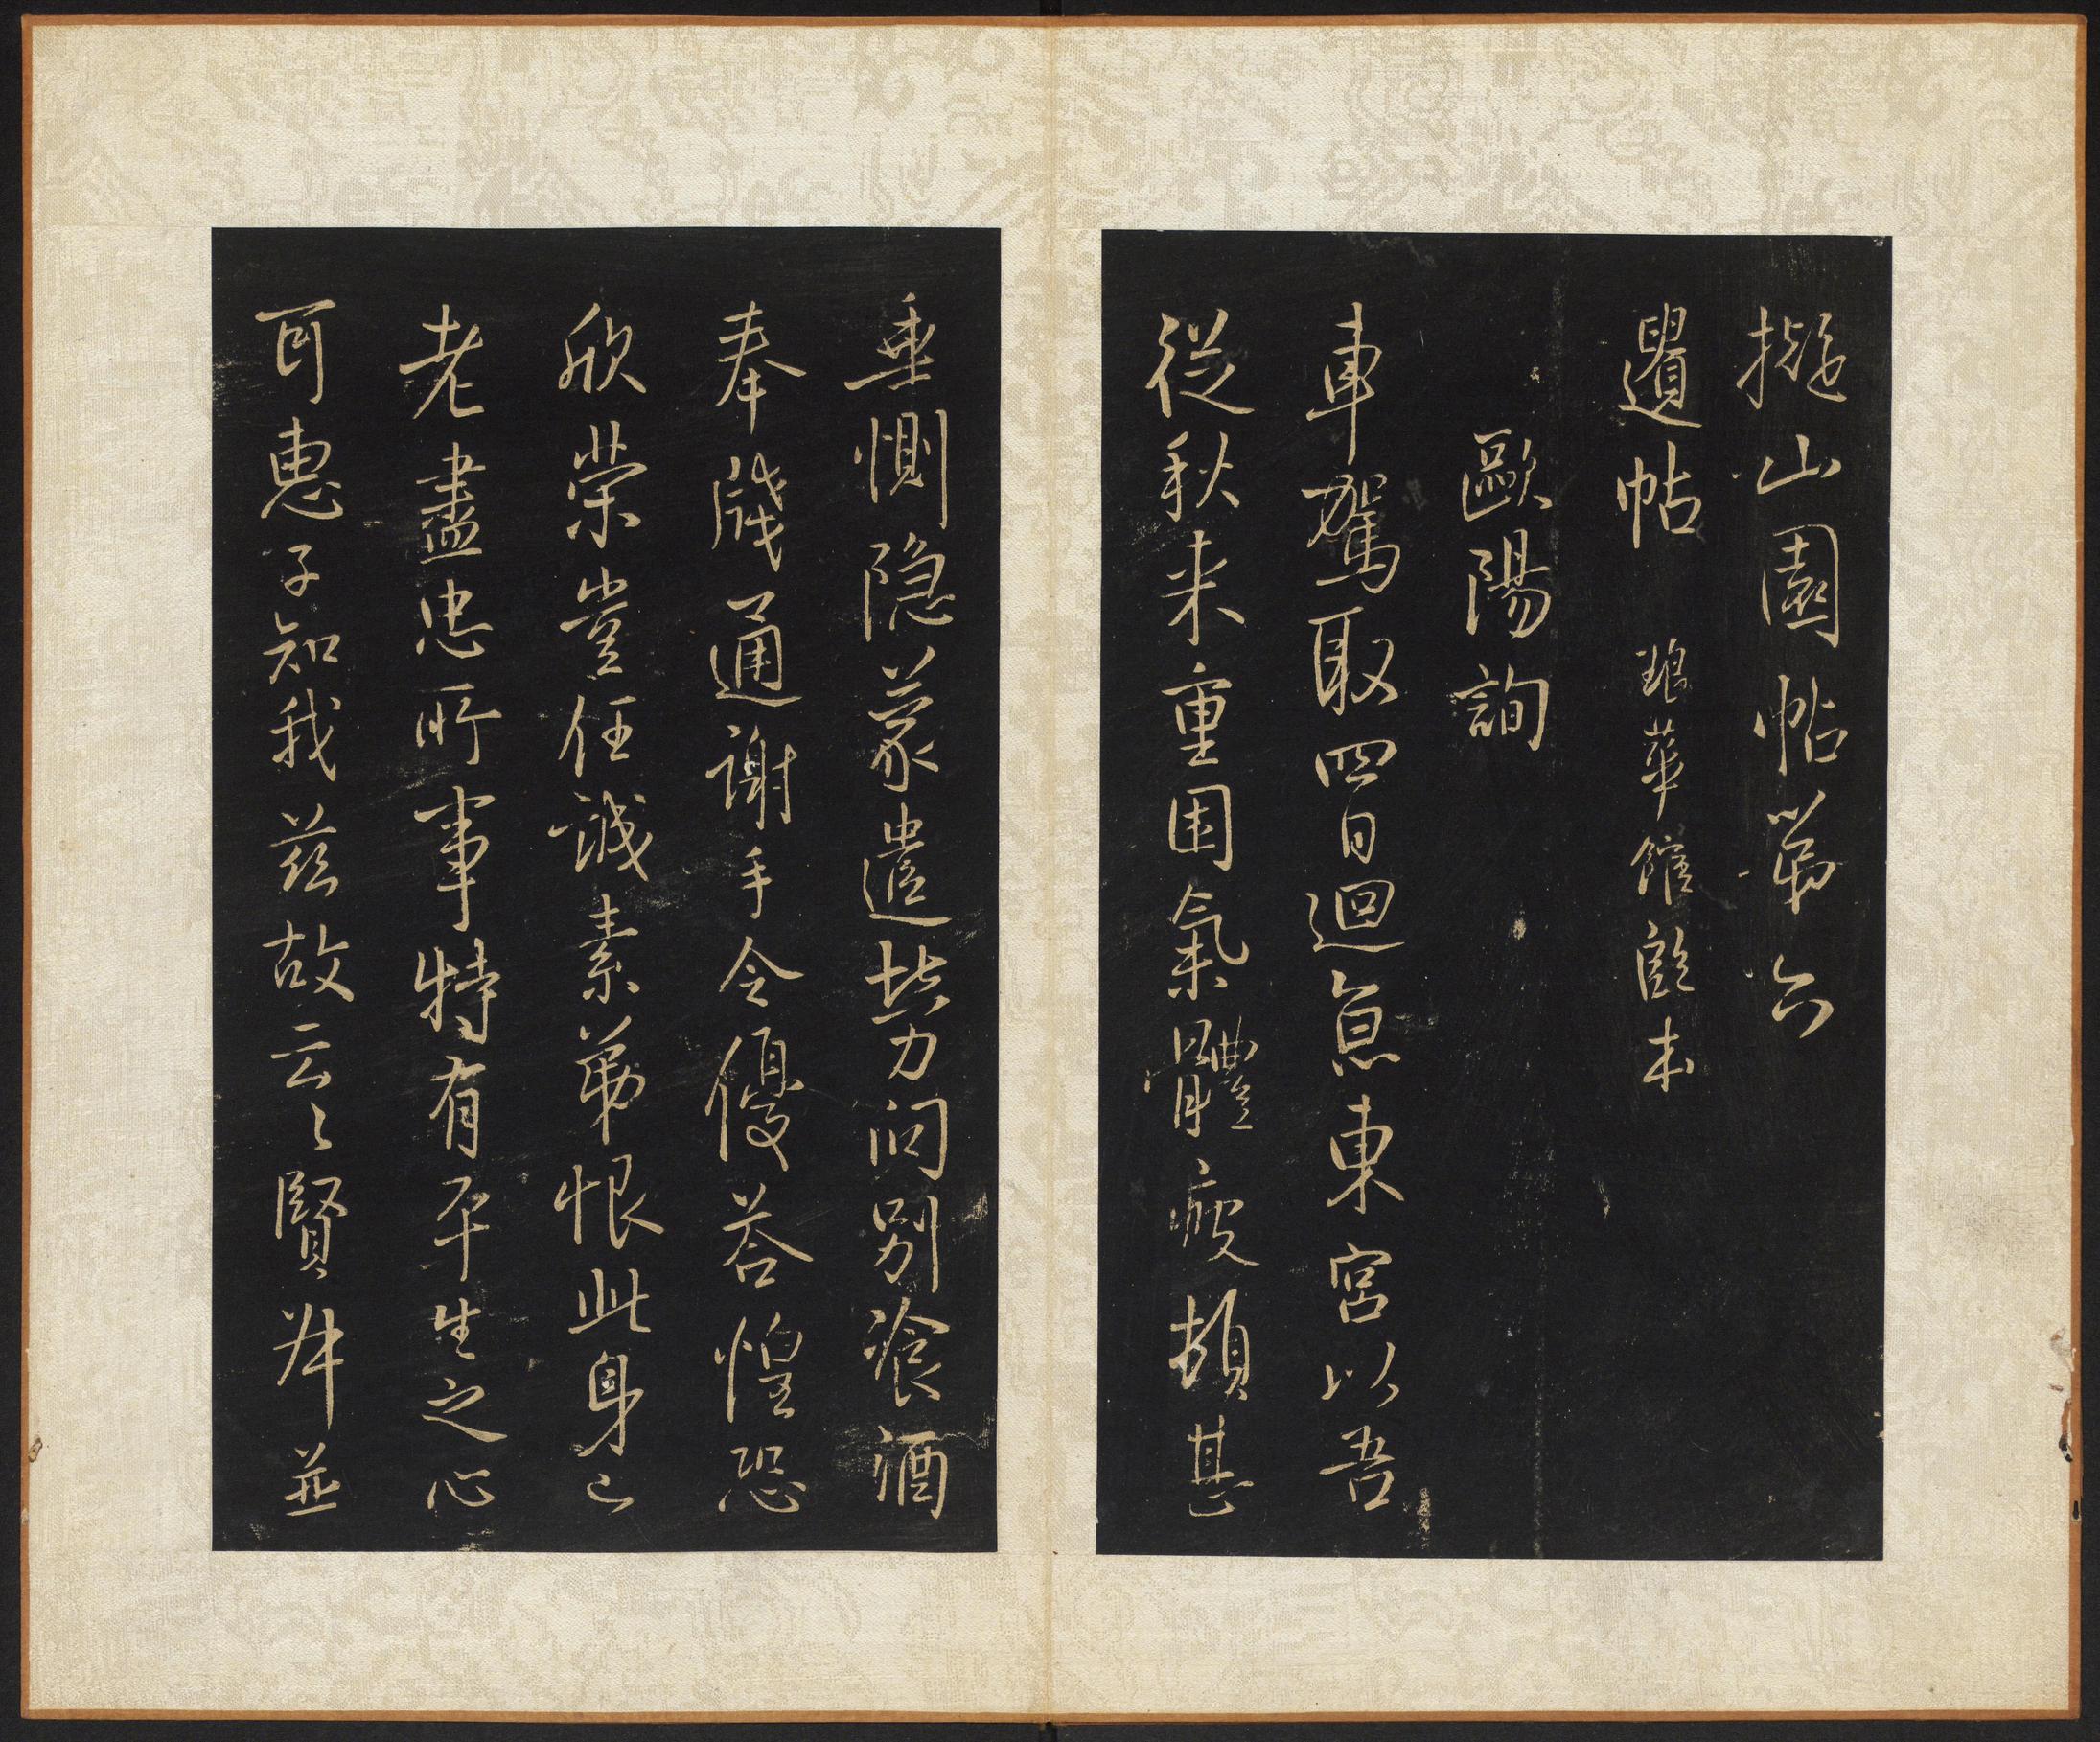 擬山園帖第六
遺帖 琅華館臨本
歐陽詢
車駕取四日迴怠東宮以吾
從秋来重困氣體疲頓甚
垂惻隐蒙遣㔟力问别飡酒
奉牋通謝手令優荅惶恐
欣荣豈任誠素弟恨此身已
老盡忠所事特有平生之心
耳惠子知我兹故云〻賢弟並